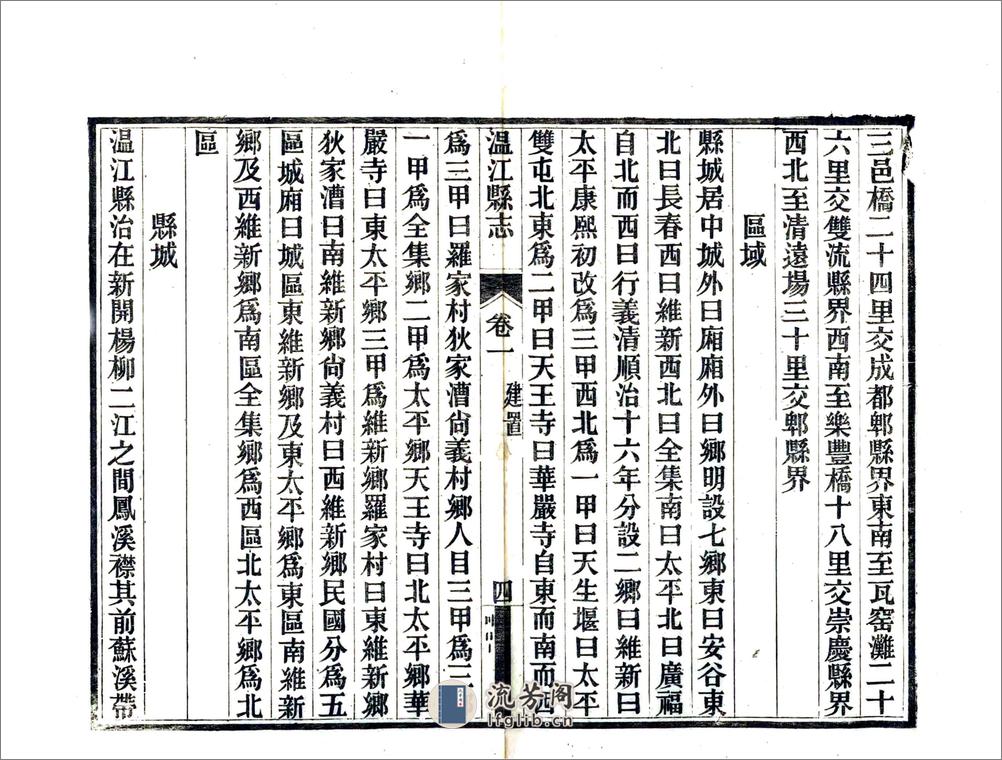 三邑橋二十四里交成都郫縣界東南至瓦窑灘二十
六里交雙流縣界西南至樂豐橋十八里交崇慶縣界
西北至清遠場三十里交郫縣界
區域
縣城居中城外曰廂廂外曰鄉明設七鄉東曰安谷東
北曰長春西曰維新西北曰全集南曰太平北曰廣福
自北而西曰行義清順治十六年分設二鄉曰維新曰
太平康熙初改爲三甲西北爲一甲曰天生堰曰太平
雙屯北東爲二甲曰天王寺曰華嚴寺自東而南而西
溫江縣志
卷一
建置
四
爲三甲曰羅家村狄家漕尙義村鄉人目三甲爲三
一甲爲全集鄉二甲爲太平鄉天王寺曰北太平鄉華
嚴寺曰東太平鄉三甲爲維新鄉羅家村曰東維新鄉
狄家漕曰南維新鄉尙義村曰西維新鄉民國分爲五
區城廂曰城區東維新鄉及東太平鄉爲東區南維新
鄉及西維新鄉爲南區全集鄉爲西區北太平鄉爲北
區
縣城
溫江縣治在新開楊柳二江之間鳳溪襟其前蘇溪帶
流芳阁
lfglib.cn